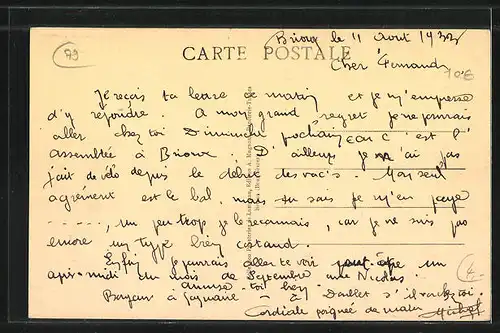 79
Brioux le 11 Aout 1932
CARTE POSTALE
Cher Fernand
Je reçois ta lettre ce matin et je m'empresse
d'y répondre. A mon grand regret je ne pourrais
aller chez toi Dimanche prochain car c'est l'
assemblée à Brioux. D'ailleurs je n'ai pas
fait de vélo depuis le début des vac's. Mon seul
agrément est le bal, mais tu sais je m'en paye
------, un peu trop je le reconnais, car je ne suis pas
encore un type bien costaud.
Enfin je pourrais aller te voir peut-être un
après-midi du mois de Septembre avec Nicolas.
amuse toi bien
Bonjour à et à Daillet s'il
Cordiale poignée de mains
4